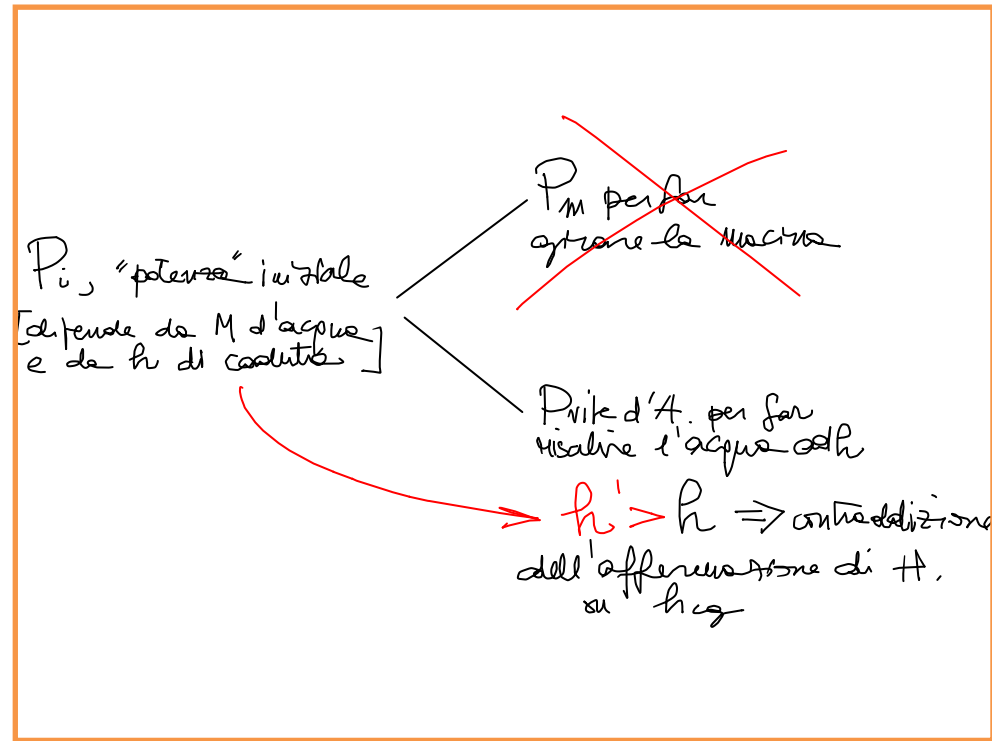 Pi, "potenza" iniziale
[dipende da M d'acqua
e da h di caduta]
Pm per far
girare la macina
Pvite d'A. per far
risalire l'acqua ad h
h' > h => contraddizione
dell'affermazione di H.
su hcg